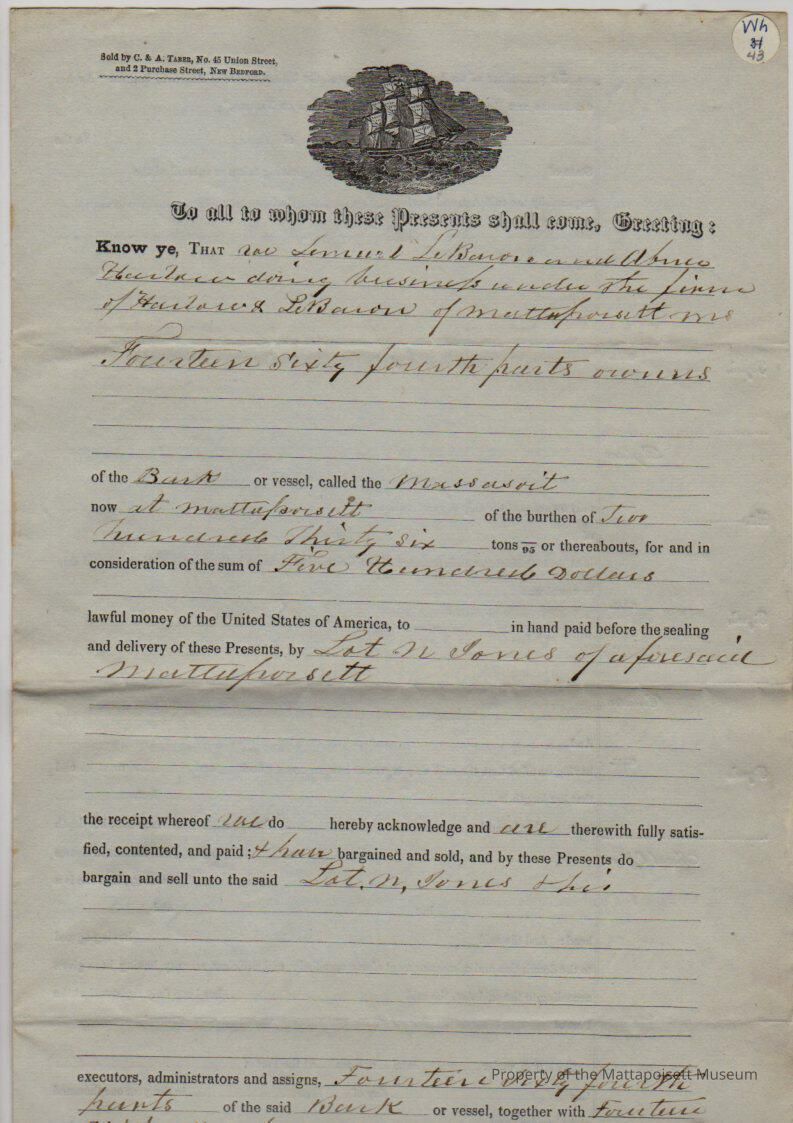 Wh
43
Sold by C. & A. Taber, No. 45 Union Street,
and 2 Purchase Street, New Bedford.
To all to whom these Presents shall come, Greeting:
Know ye, That we Lemuel LeBaron and Abner
Harlow doing business under the firm
of Harlow & LeBaron of Mattapoisett
Fourteen Sixty fourth parts owners
of the Bark or vessel, called the Massasoit
now at Mattapoisett of the burthen of Two
hundred Thirty Six tons 95 or thereabouts, for and in
consideration of the sum of Five Hundred Dollars
lawful money of the United States of America, to in hand paid before the sealing
and delivery of these Presents, by Lot N Jones of aforesaid
Mattapoisett
the receipt whereof we do hereby acknowledge and are therewith fully satis-
fied, contented, and paid; & have bargained and sold, and by these Presents do
bargain and sell unto the said Lot. N, Jones & his
executors, administrators and assigns, Fourteen sixty fourth
parts of the said Bark or vessel, together with Fourteen
Property of the Mattapoisett Museum